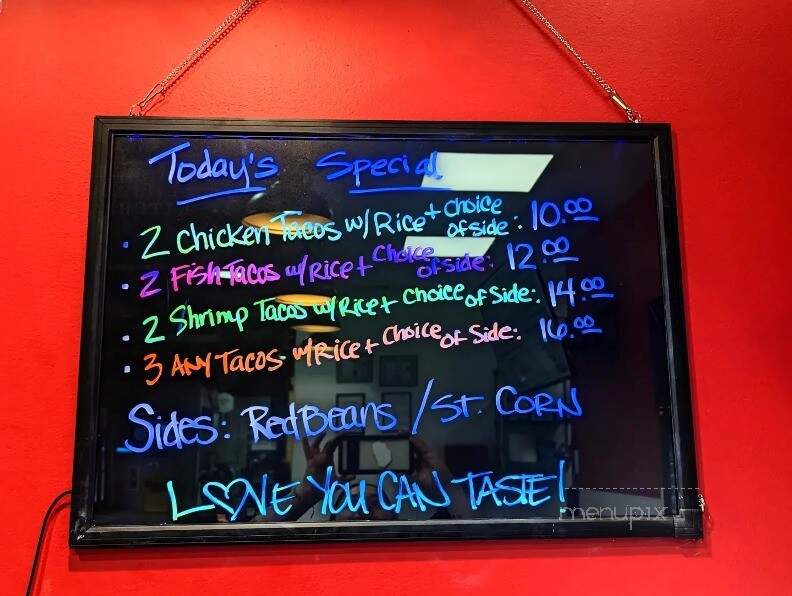 Today's Special
• 2 Chicken Tacos w/Rice + Choice of side: 10.00
• 2 Fish Tacos w/Rice + Choice of side: 12.00
• 2 Shrimp Tacos w/Rice + Choice of Side: 14.00
• 3 ANY Tacos w/Rice + Choice of Side: 16.00
Sides: Red Beans / ST. CORN
L♡VE YOU CAN TASTE!
menupix